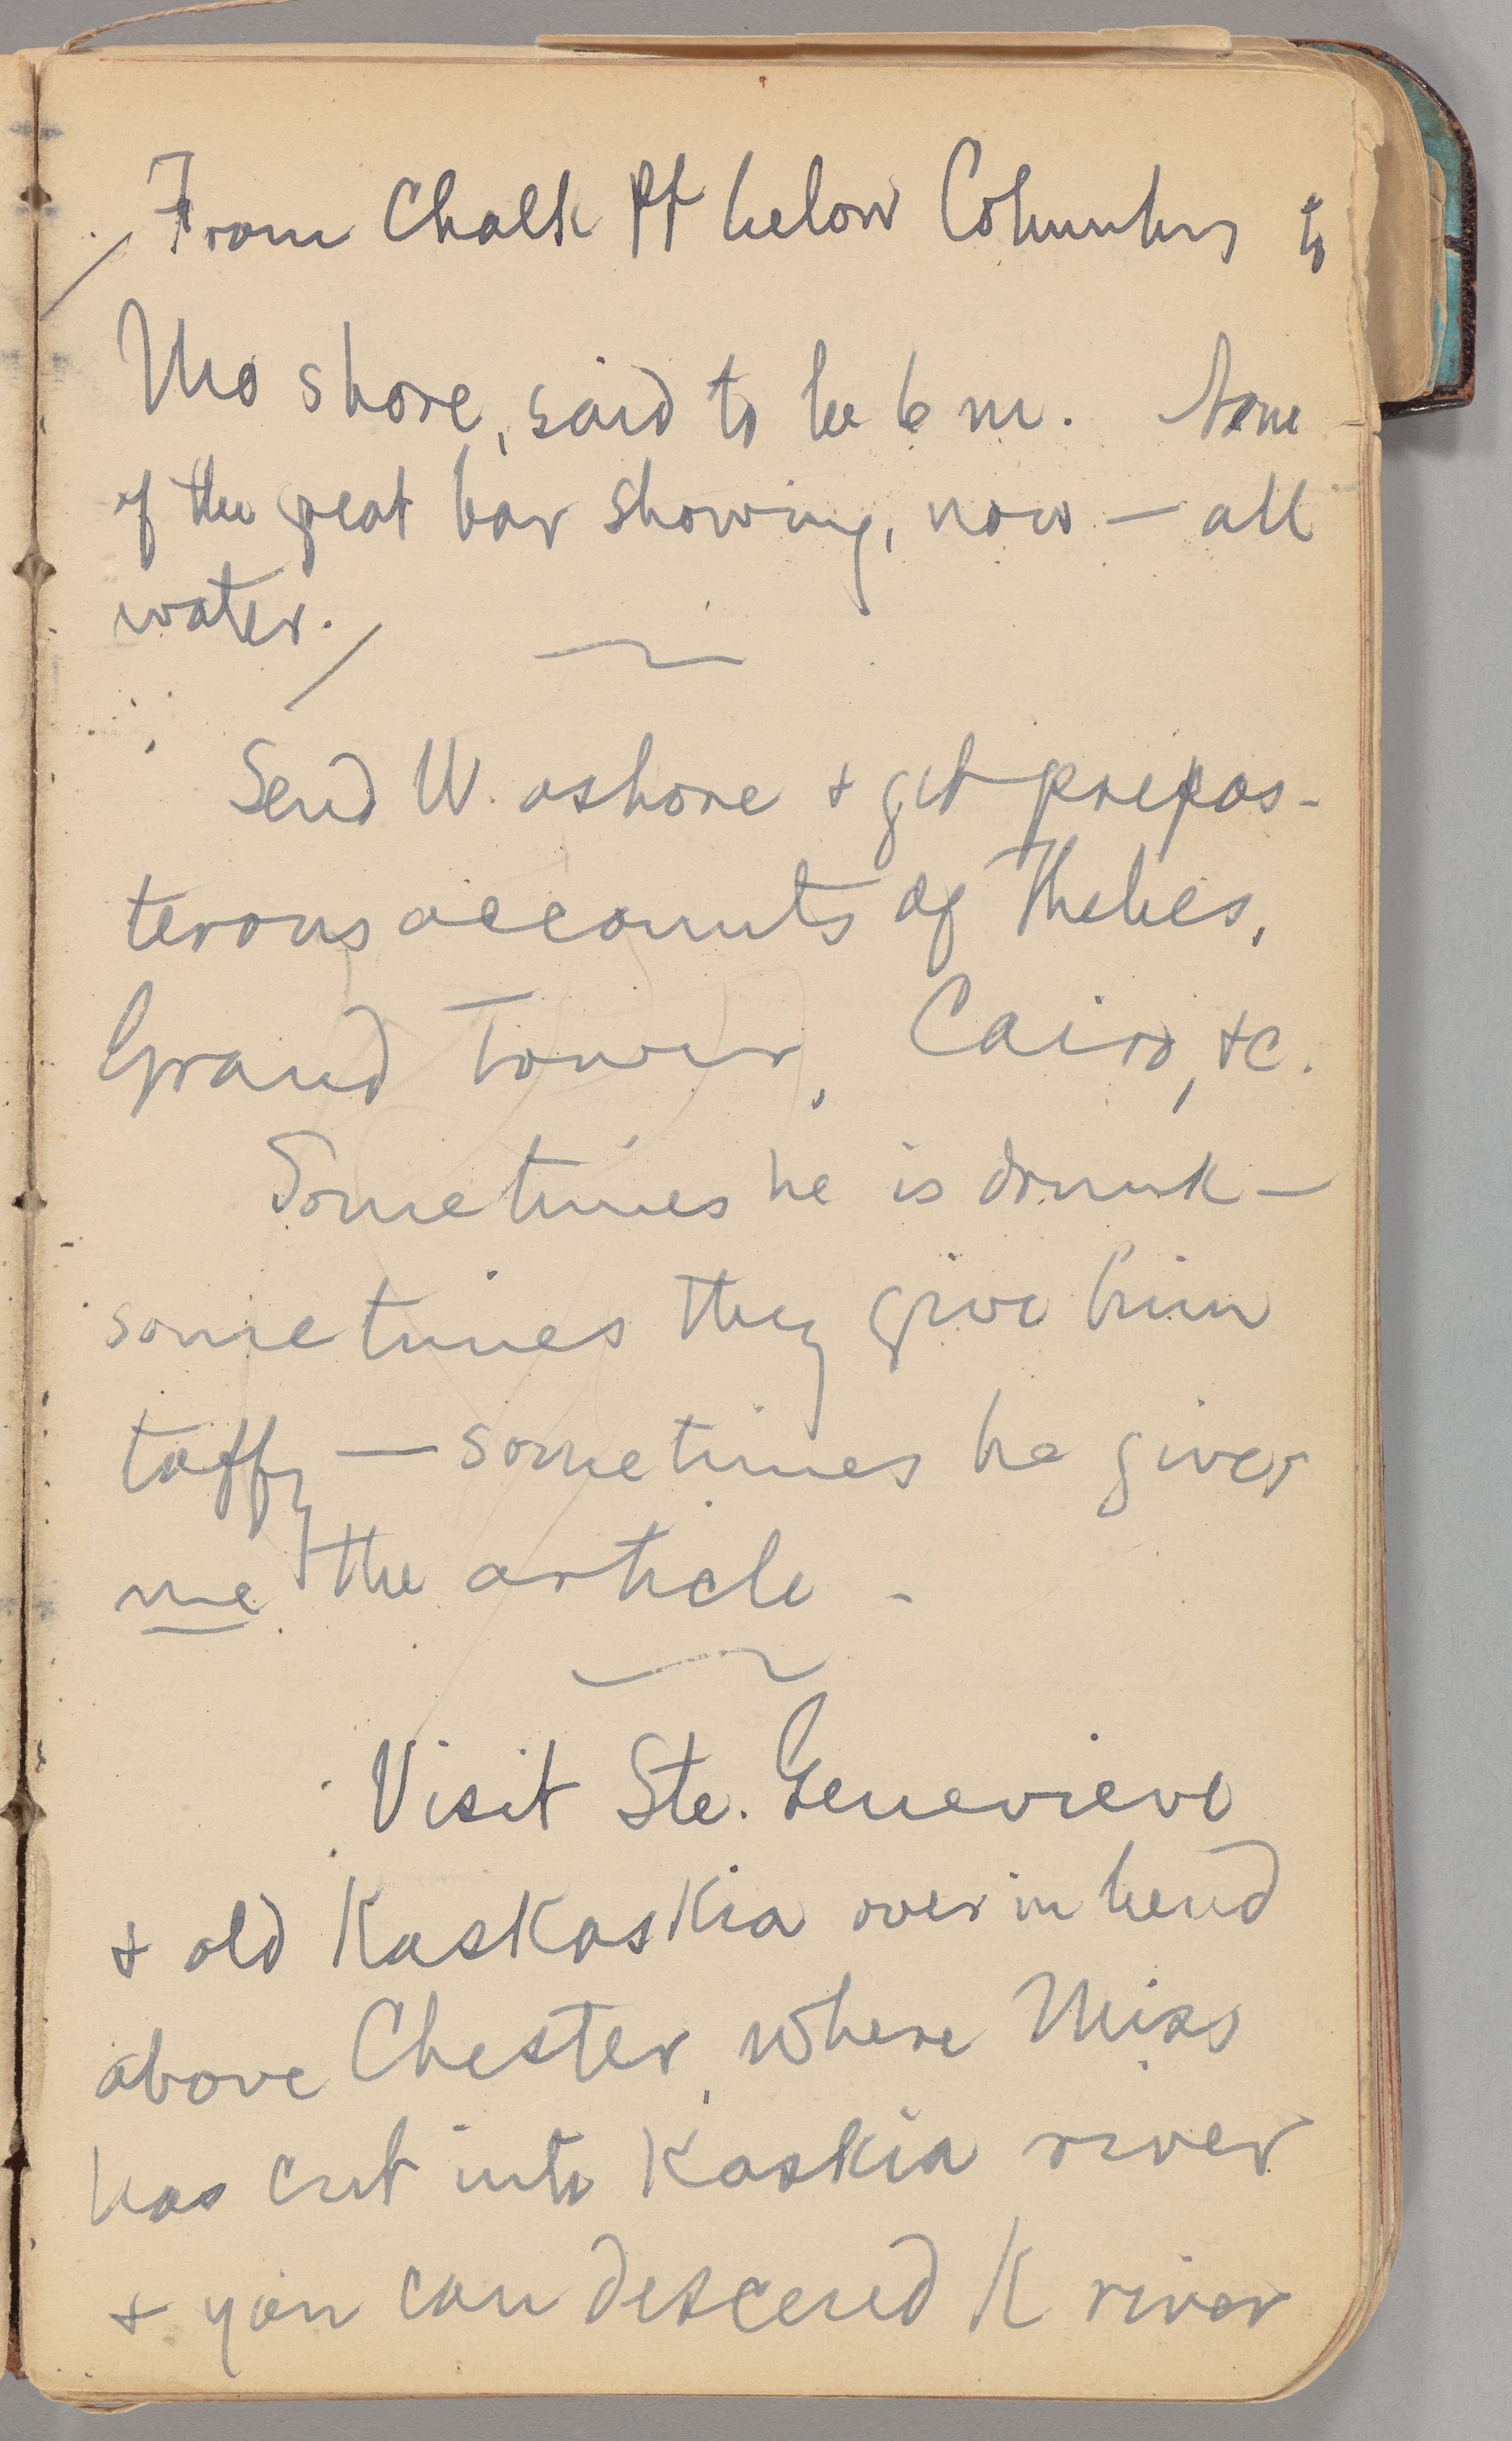 / From Chalk Pt below Columbus to
Mo shore, said to be 6 m. None
of the great bar showing, now — all
water. /
Send W. ashore & get prepos-
terous accounts of Thebes,
Grand Tower, Cairo, &c.
Sometimes he is drunk —
sometimes they give him
taffy — sometimes he gives
me the article.
Visit Ste. Genevieve
& old KasKasKia over in bend
above Chester, where Miss
has cut into Kaskia river
& you can descend K river